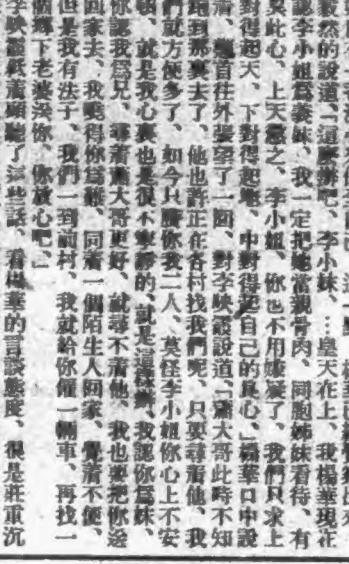 毅然的說道、「這麽辦吧、李小妹、…皇天在上、我楊華現在
認李小姐爲義妹、我一定把她當親骨肉、同胞姊妹看待、有
此心、上天鑒之、李小姐、你也不用嫌疑了、我們只求上
對得起天、下對得起地、中對得起自己的良心、」楊華口中說
着、首往外張望了一回、對李映霞說道、「蕭大哥此時不知
跑到那裏去了、他也許正在各村找我們呢、只要尋着他、我
們就方便多了、如今只賸你我二人、莫怪李小姐你心上不安
頓、就是我心裏也是很不寧靜的、就是這樣辦、我認你爲妹、
你認我爲兄、尋着蕭大哥更好、就尋不着他、我也要把你送
回家去、我曉得你爲難、同着一個陌生人回家、覺着不便、
但是我有法子、我們一到前村、我就給你僱一輛車、再找一
個鄉下老婆送你、你放心吧、」
李映霞聽了這些話、看楊華的言談態度、很是莊重沉